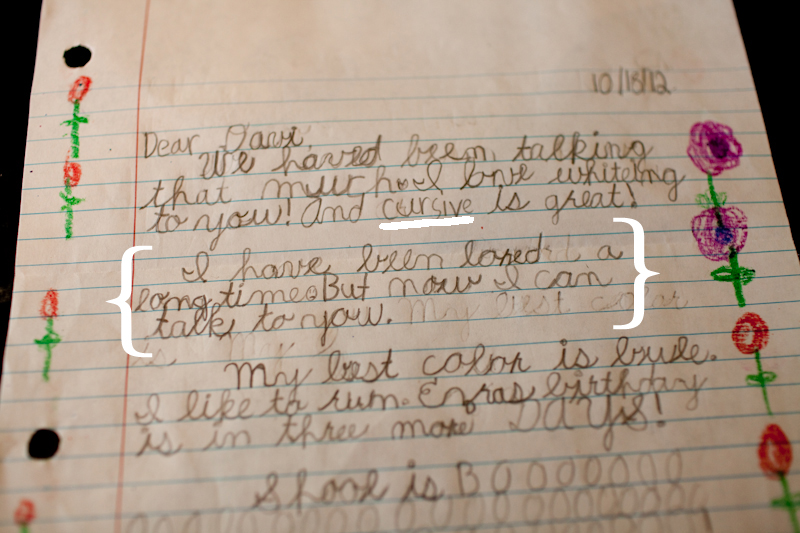 10/18/12
Dear
We haved been talking
that much I love whiteing
to you! And cursive is great!
I have been lored a
long time. But now I can
talk to you. My best color
is
My best color is bule.
I like to rum. Enras birthday
is in three more DAYS!
Shool is BOOOOOOOO